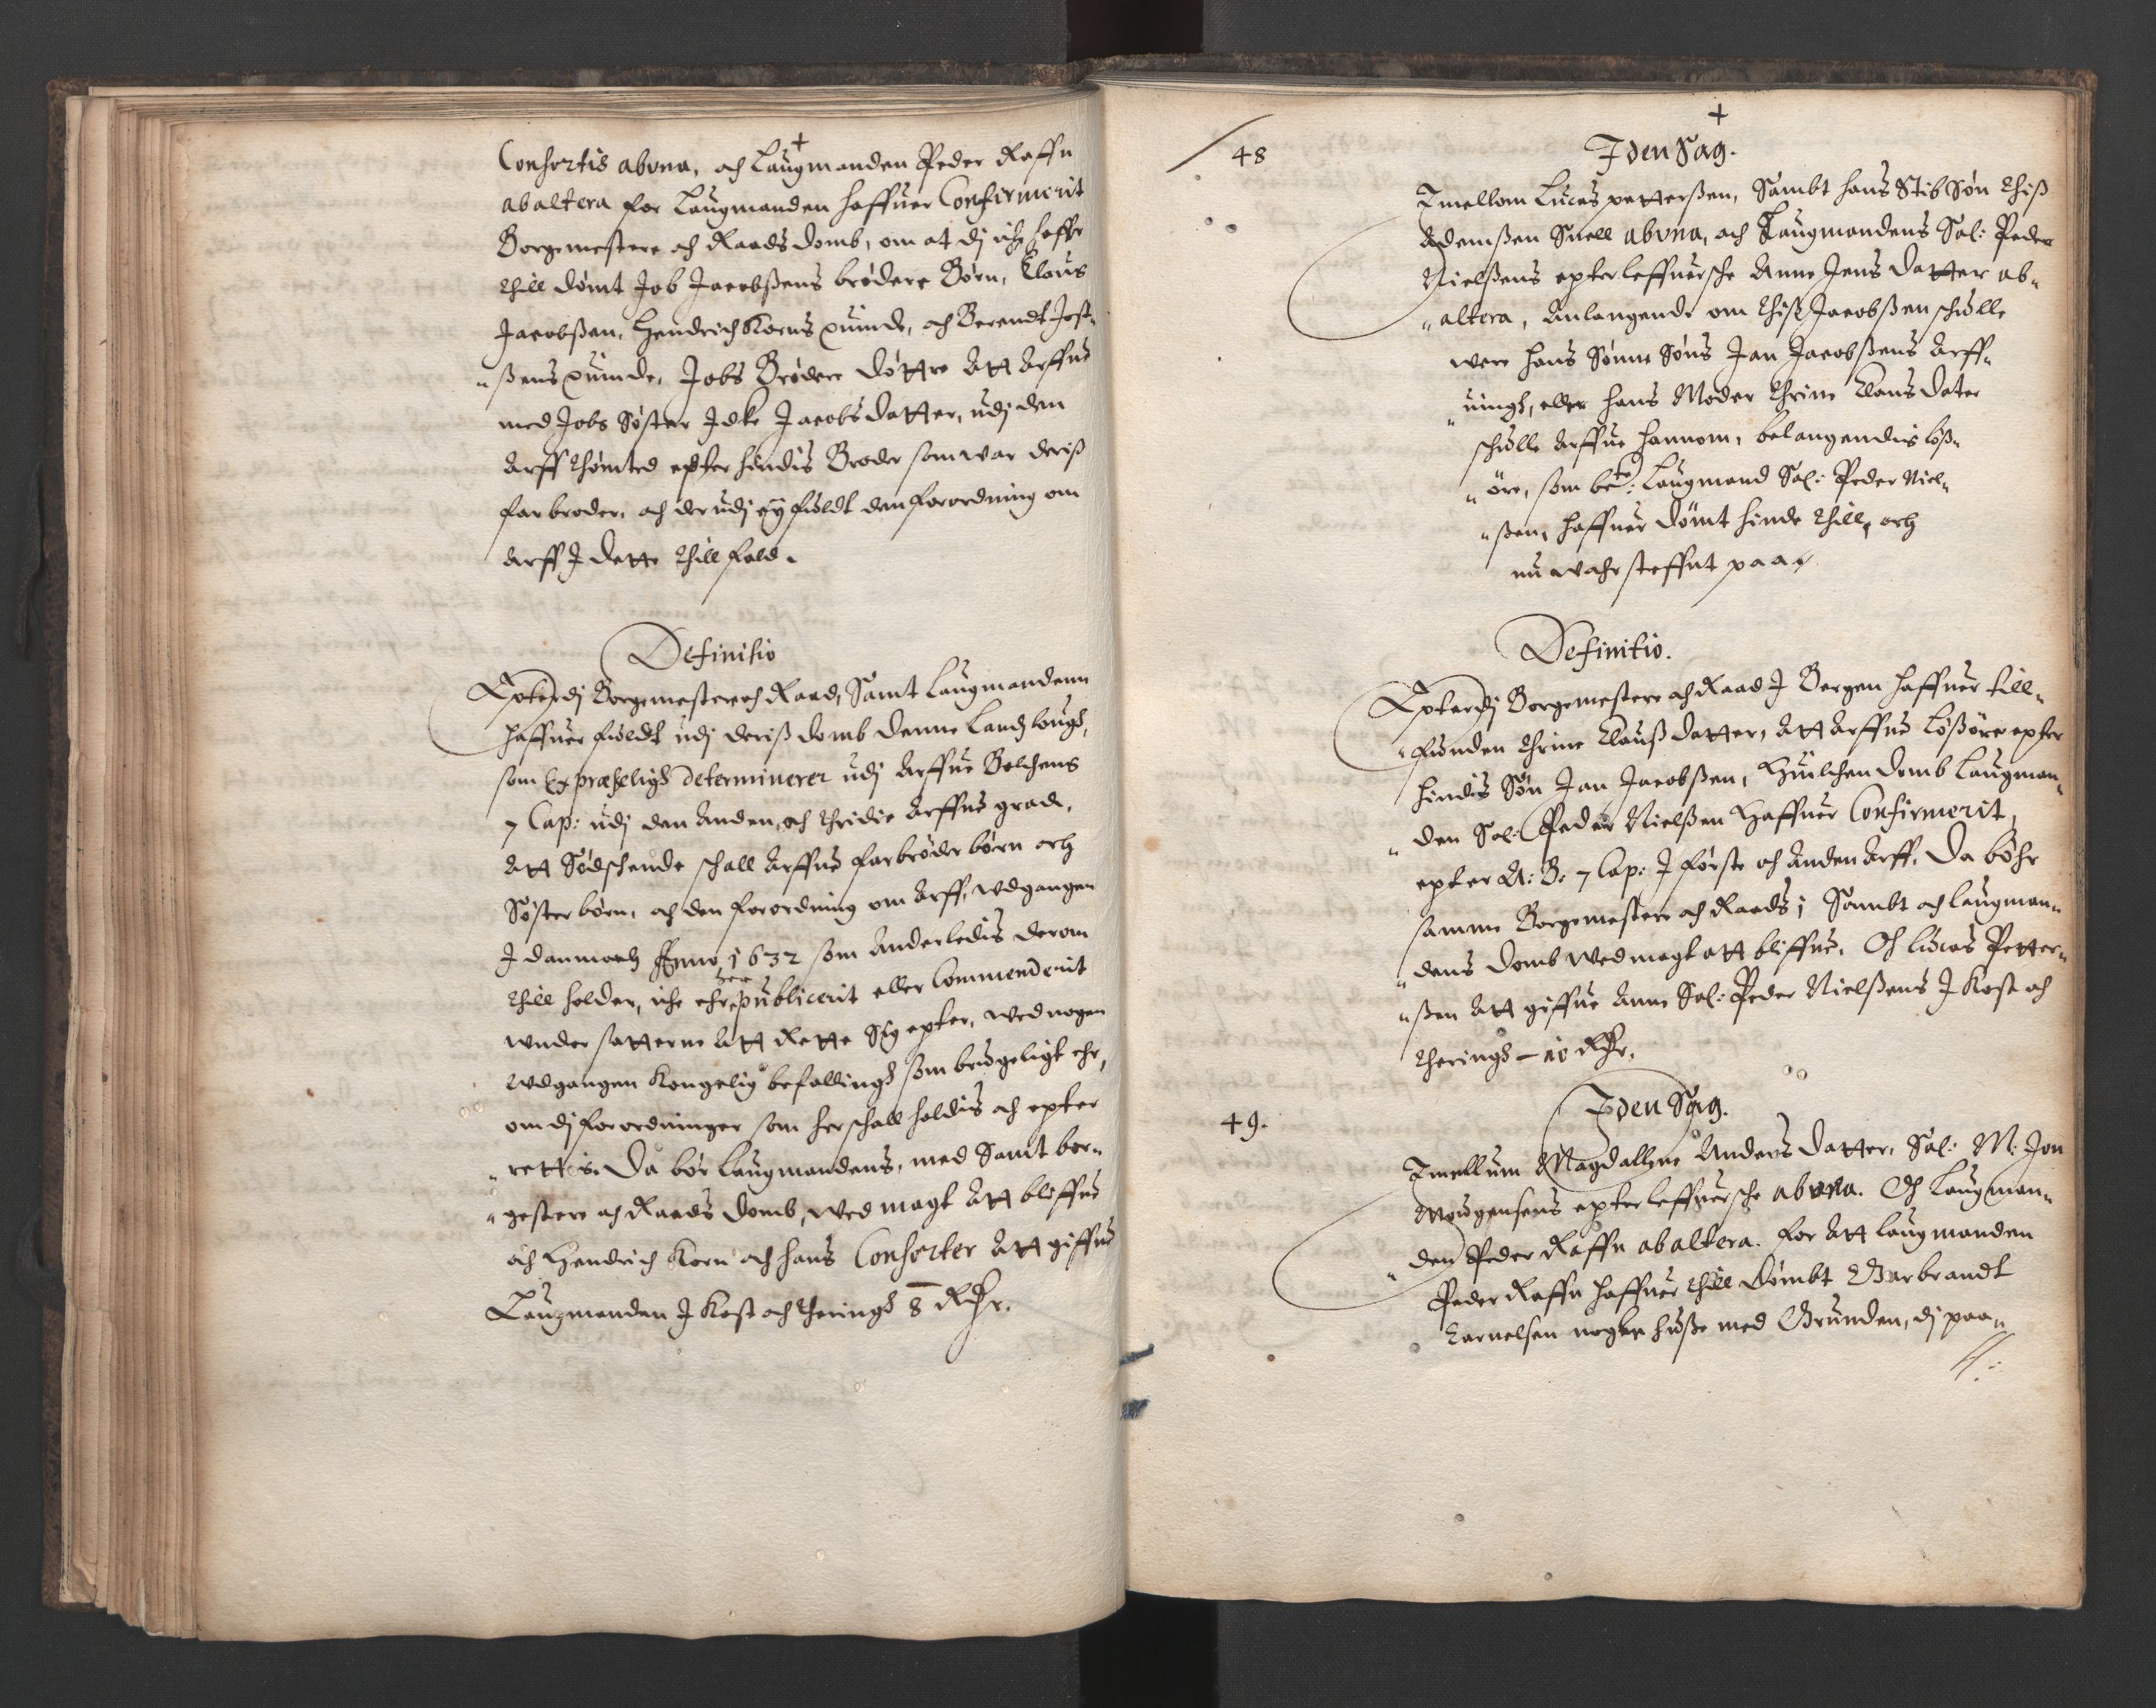 Consortis abuna, och Laugmanden Peder Raffn
abaltera for Laugmanden haffuer Confirmerit
Borgemestere och Raads domb, om at dj iche haffr
thill dømt Job Jacobßens brødere Børn, Claus
Jacobßen, Hendrich Korns quinde, och Berendt Jost-
"ßens quinde, Jobs Brøders døttre Att Arffue
med Jobs Søster Idke Jacobs datter, udj den
Arff thømted epter hindis Broder som var deris
farbroder, och der udj ey fuldt den forordning om
Arff I dette thillfeld.
Definitio
Epterdj Borgemestere och Raad, Samt Laugmandenn
haffuer fuldt udj deris domb denne Landz lough,
som Expræseligh determinerer udj Arffue Bolchens
7 Cap: udj den Anden, och thridie Arffue grad,
Att Sødschende schall Arffue farbroder børn och
Søsterbørn, och den forordning om Arff, udgangen
I danmarch Anno 1632 som Anderledis derom
thill holder, iche ehr her publicerit eller Commenderit
wndersatterne Att Rette Sig epter, wed nogen
udgangen Kongelig befallingh som brugeligt ehr,
om dj forordninger som her schall holdis och epter
"rettis. Da bør Laugmandens, med Samt bor-
"gestere och Raads domb, wed magt Att bliffue
och Hendrich Korn och hans Consorter Att giffue
Laugmanden I Kost och theringh 8 Rdr.
48
I den Sag.
Imellom Lucas petterßen, Sambt hans Stib Søn thiß
Ademßen Snell abuna, och Laugmandens Sal: Peder
Nielßens epterleffuersche Anne Jens datter ab-
"altera, Anlangende om thiß Jacobßen schulle
were hans Sønne Søns Jan Jacobßens Arff-
"uingh, eller hans Moder thrine Claus dater
schulle Arffue hannom, belangendis løß-
"öre, som bete: Laugmand Sal: Peder Niel-
"ßen, haffuer dømt hinde thill, och
nu wahr steffnt paa
Definitio.
Epterdj Borgemestere och Raad I Bergen haffuer till-
"funden thrine Clauß datter, Att Arffue løßøre epter
hindis Søn Jan Jacobßen, Huilchen domb Laugman-
"den Sal: Peder Nielßen Haffuer Confirmerit,
epter A: B: 7 Cap: I første och Anden Arff, Da bøhr
samme Borgemestere och Raads, Sambt och Laugman-
"dens domb wed magt att bliffue. Och Lucas Petter-
"ßen Att giffue Anne Sal: Peder Nielßens I Kost och
theringh – 10 Rdr.
49.
I den Sag.
Imellum Magdallene Anders datter, Sal: M: Jon
Mougensens epterleffuersche abuna. Och Laugman-
"den Peder Raffn abaltera. for Att Laugmanden
Peder Raffn haffuer thill dømbt Garbrandt
Carnelsen nogle huße med Grunden, dj paa-